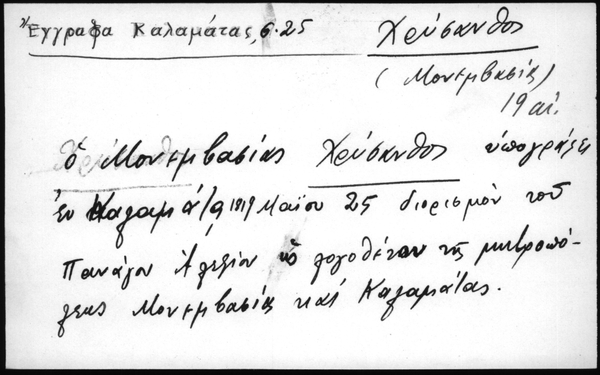 Ἔγγραφα Καλαμάτας, σ. 25
Χρύσανθος
(Μονεμβασίας)
19 αἰ.
Ὁ Μονεμβασίας Χρύσανθος ὑπογράφει
ἐν Καλαμάτᾳ 1819 Μαΐου 25 διορισμὸν τοῦ
Πανάγου Ἀλεξίου ὡς λογοθέτου τῆς μητροπό-
λεως Μονεμβασίας καὶ Καλαμάτας.